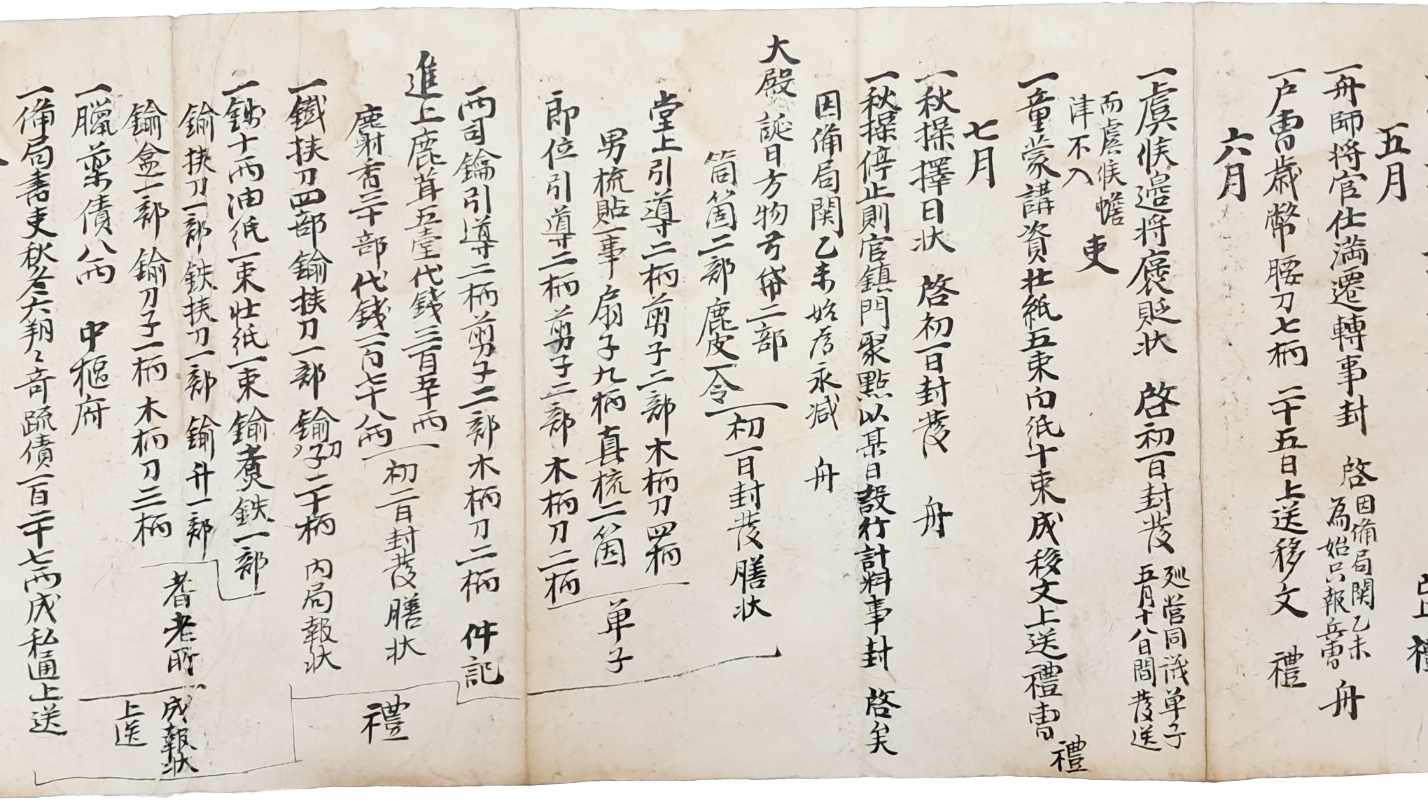 已上 禮
五月
一舟師將官仕滿遷轉事封 啓因備局関乙未
為始只報兵曹 舟
一戶曹歲幣腰刀七柄 二十五日上送移文 禮
六月
一虞候邊將褒貶狀 啓初一日封發 巡營同議單子
五月十八日間發送
而虞候蟾
津不入 吏
一童蒙講資壯紙五束白紙十束成移文上送禮曹 禮
七月
一秋操擇日狀 啓初一日封發 舟
一秋操停止則官鎮門聚點以某日設行計料事封 啓矣
因備局関乙未始彦永減 舟
大殿誕日方物弓帒二部
筒箇二部鹿皮一令 初一日封發膳狀
堂上引導二柄剪子二部木柄刀四柄
男梳貼一事扇子九柄真梳二箇 單子
即位引導二柄剪子二部木柄刀二柄
兩司鑰引導二柄剪子二部木柄刀二柄 件記
進上鹿茸五壹代錢三百五十兩
麝射香二十部代錢一百七十八兩 初二日封發膳狀
禮
一鐵挾刀四部鍮挾刀一部鍮刀子二十柄 內局報狀
一錢十兩油紙一束壯紙一束鍮煮鉄一部
鍮挾刀一部鉄挾刀一部鍮升一部
鍮盒一部鍮刀子一柄木柄刀三柄 耆老所 成報狀
一臘藥債八兩 中樞府 上送
一備局書吏秋冬六朔々奇疏債一百二十七兩成私通上送